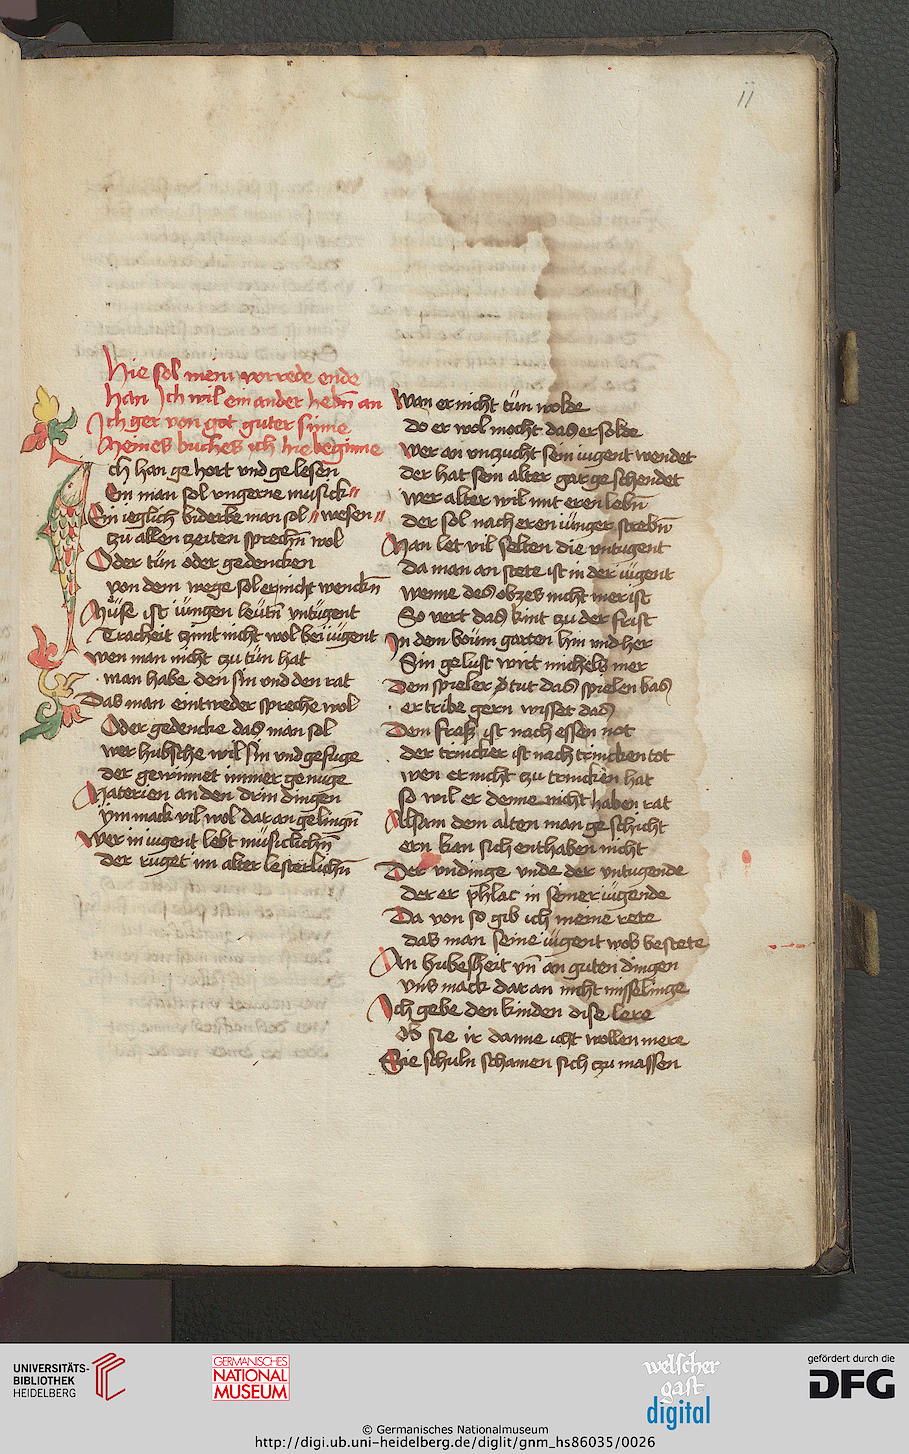 11
Hie sol mein vorrede ende
han Ich wil ein ander hebn̄ an
Ich ger von got guter sinne
Meines buches ich hie beginne
Ich han gehort vnd gelesen
Ein man sol vngerne musick
Ein ieglich biderbe man sol wesen
czu allen czeiten sprechn̄ wol
Oder tün oder gedencken
von dem wege sol er nicht wenckn̄
Müse ist iungen leütn̄ vntugent
Tracheit czimt nicht wol bei iugent
wen man nicht czu tün hat
man habe den sin vnd den rat
Das man eintweder spreche wol
Oder gedencke das man sol
wer hubsche wil sin vnd gefuge
der gewinnet immer genuge
Materien an den drin dingen
ym mack vil wol dar an gelingn̄
Wer in iugent lebt müsiclichn̄
der rüget im alter lesterlichn̄
Wan er nicht tün wolde
do er wol mocht das er solde
wer an vnczucht sein iugent wendet
der hat sein alter gar geschendet
wer alter wil mit eren lebn̄
der sol nach eren iünger strebn̄
Man let vil selten die vntugent
Da man an stete ist in der iugent
wenne des obzes nicht mer ist
So vert das kint czu der frist
In dem boum garten hin vnd her
Sin gelust wirt michels mer
Dem spieler tut das spielen bas
er tribe gern wisset das
Dem fraß ist nach essen not
der trincker ist nach trincken tot
wen er nicht czu trincken hat
so wil er denne nicht haben rat
Alsam dem alten man geschicht
ern kan sich enthaben nicht
Der vndinge vnde der vntugende
der er phlac in seiner iugende
Da von so gib ich meine rete
das man seine iugent wob bestete
An hubesheit vn̄ an guten dingen
vns mack dar an nicht misselinge
Ich gebe den kinden dise lere
Ob sie ir danne icht wollen mere
Sie schuln schamen sich czu massen
UNIVERSITÄTS-
BIBLIOTHEK
HEIDELBERG
GERMANISCHES
NATIONAL
MUSEUM
welscher
gast
digital
gefördert durch die
DFG
© Germanisches Nationalmuseum
http://digi.ub.uni-heidelberg.de/diglit/gnm_hs86035/0026